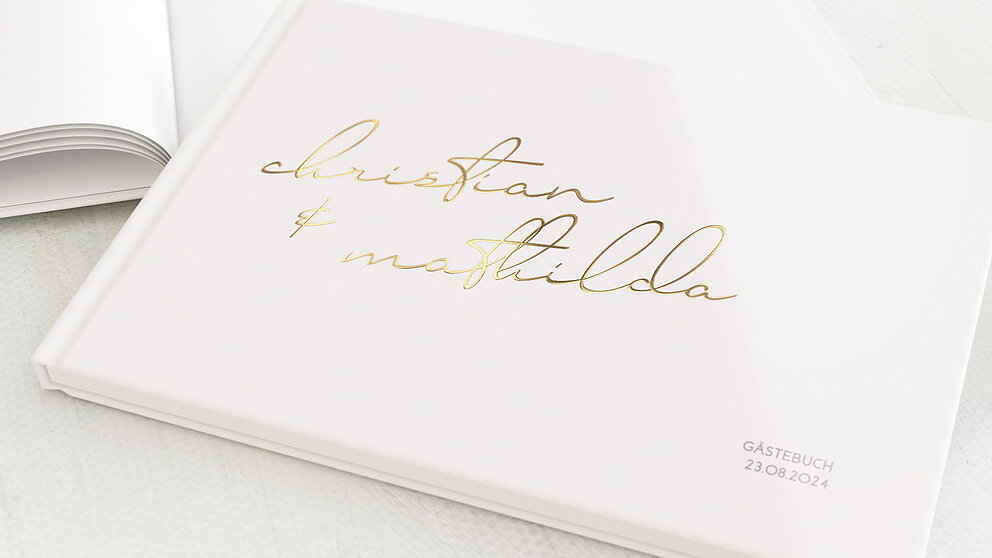 christian
&
mathilda
GÄSTEBUCH
23.08.2024